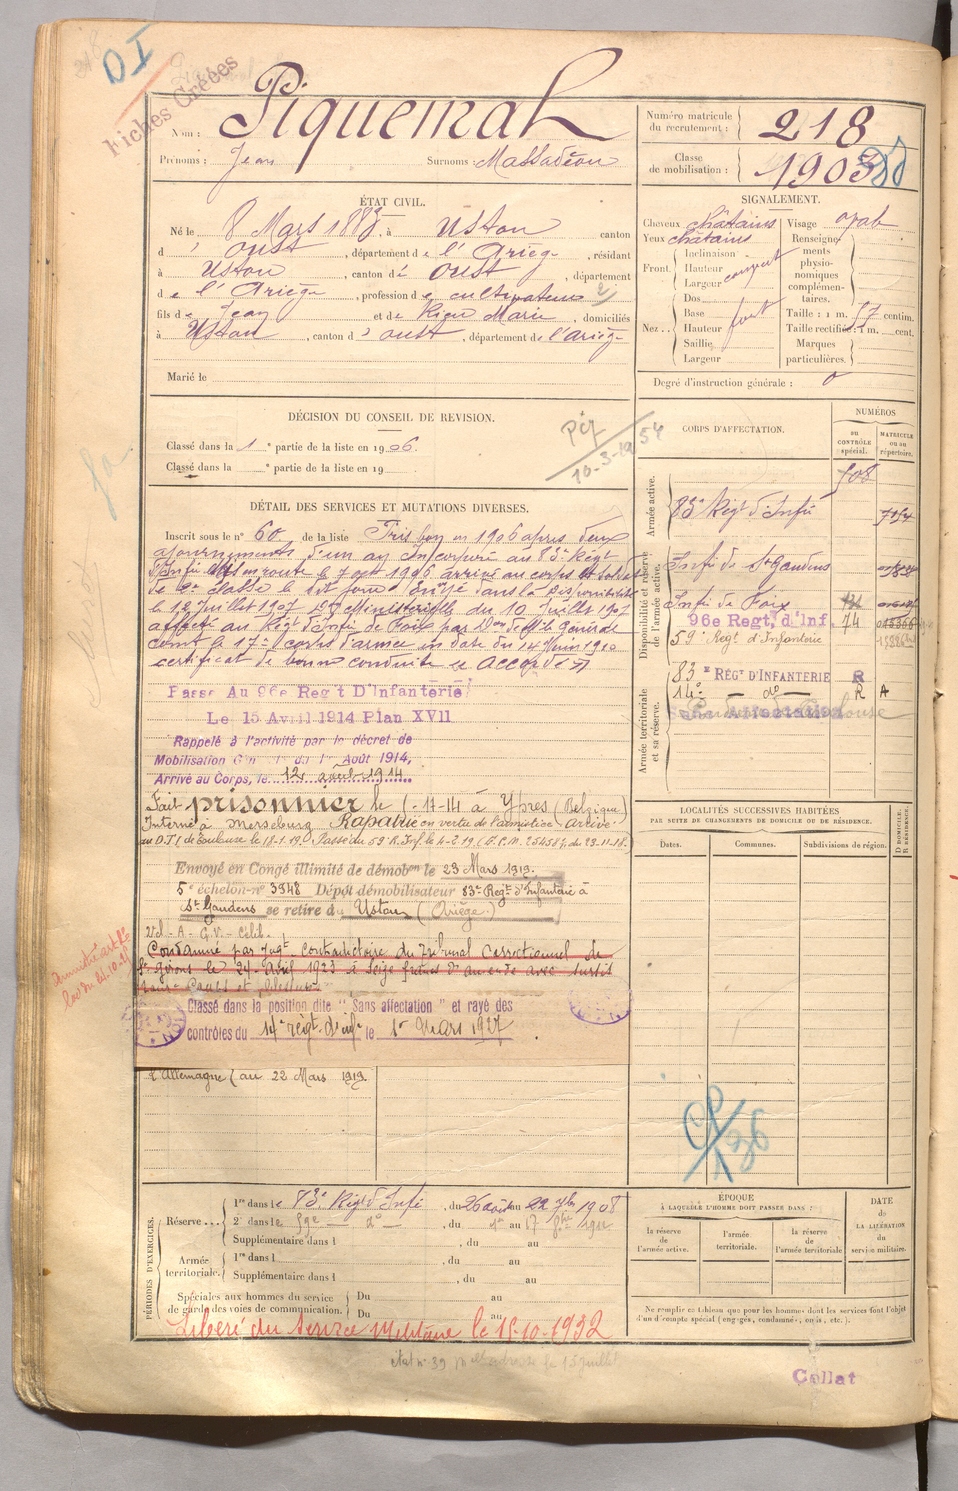 DI
Fiches Créées
Nom : Piquemal
Prénoms : Jean Surnoms : Massadéou
Numéro matricule du recrutement : 218
Classe de mobilisation : 1903
ÉTAT CIVIL.
Né le 8 Mars 1883, à Ustou canton
d' Oust, département de l'Ariège, résidant
à Ustou, canton d' Oust, département
de l'Ariège, profession de cultivateur
fils de Jean et de Rieu Marie, domiciliés
à Ustou, canton d' Oust, département de l'Ariège
Marié le
SIGNALEMENT.
Cheveux châtains Visage oval
Yeux châtains Renseignements physionomiques complémentaires.
Front. Inclinaison
Hauteur
Largeur
Nez.. Dos
Base
Hauteur fort
Saillie
Largeur
Taille : 1 m. 57 centim.
Taille rectifiée : 1 m. cent.
Marques particulières.
Degré d'instruction générale : 0
DÉCISION DU CONSEIL DE REVISION.
Classé dans la 1e partie de la liste en 1906.
Classé dans la e partie de la liste en 19
10-3-19 54
DÉTAIL DES SERVICES ET MUTATIONS DIVERSES.
Inscrit sous le n° 60 de la liste Pris bon en 1906 après deux
ajournements d'un an Incorporé au 83e Régt
d'Infie Mis en route le 7 oct 1906 arrivé au corps et Soldat
de 2e classe le dit jour Envoyé dans la disponibilité
le 12 juillet 1907 Don Ministérielle du 10 Juillet 1907
affecté au Régt d'Infie de Foix par Don de Mr le Général
comt le 17e corps d'armée en date du 14 Juin 1910
certificat de bonne conduite "Accordé"
Passé Au 96e Regt D'Infanterie
Le 15 Avril 1914 Plan XVII
Rappelé à l'activité par le décret de
Mobilisation Gale du 1er Août 1914,
Arrivé au Corps, le 12 août 1914
Fait prisonnier le 1-11-14 à Ypres (Belgique)
Interné à Merseburg Rapatrié en vertu de l'armistice arrivé
au D.T.I de Toulouse le 18-1-19. Passé du 59e R. Inf. le 4-2-19 (C.M. 25458 du 23-11-18.
Envoyé en Congé illimité de démobon le 23 Mars 1919.
5e échelon-n° 3948 Dépôt démobilisateur 83e Regt d'Infanterie à
St Gaudens se retire du Ustou (Ariège)
Vel - A - G.V. - Célib.
Condamné par Jugt contradictoire du Tribunal Correctionnel de
St Girons le 24 Avril 1923 à seize francs d'amende avec sursis
pour Coups et blessures
Classé dans la position dite "Sans affectation" et rayé des
contrôles du 14e régt d'infie le 1er Mars 1927
d'Allemagne (au 22 Mars 1919.
CORPS D'AFFECTATION.
NUMÉROS
au CONTRÔLE spécial.
MATRICULE ou au répertoire.
Armée active.
508
83e Régt d'Infie
Disponibilité et réserve de l'armée active
Infie de St Gaudens
Infie de Foix
96e Regt. d'Inf. 74
59e Regt d'Infanterie
Armée territoriale et sa réserve.
83e RÉGT D'INFANTERIE R
14e — do — R A
Sans Affectation
LOCALITÉS SUCCESSIVES HABITÉES
PAR SUITE DE CHANGEMENTS DE DOMICILE OU DE RÉSIDENCE.
Dates. Communes. Subdivisions de région.
D DOMICILE. R RÉSIDENCE.
PÉRIODES D'EXERCICES.
Réserve... 1re dans le 83e Régt d'Infie, du 26 août au 22 7bre 1908
2e dans le 59e — do —, du 1er au 17 1912
Supplémentaire dans l , du au
Armée territoriale. 1re dans l , du au
Supplémentaire dans l , du au
Spéciales aux hommes du service de garde des voies de communication. Du au
Du au
Libéré du Service Militaire le 15-10-1932
ÉPOQUE
À LAQUELLE L'HOMME DOIT PASSER DANS :
la réserve de l'armée active.
l'armée territoriale.
la réserve de l'armée territoriale
DATE de LA LIBÉRATION du service militaire.
Ne remplir ce tableau que pour les hommes dont les services font l'objet
d'un décompte spécial (engagés, condamnés, omis, etc.).
Collat